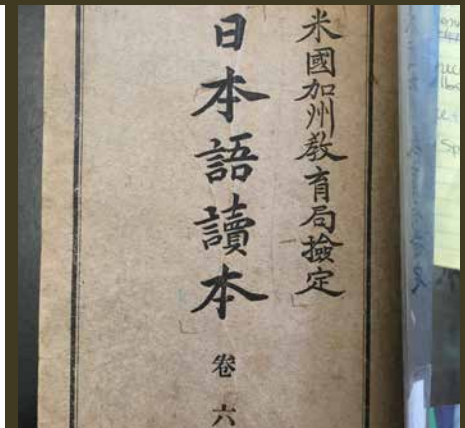 米國加州教育局撿定
日本語讀本
卷六